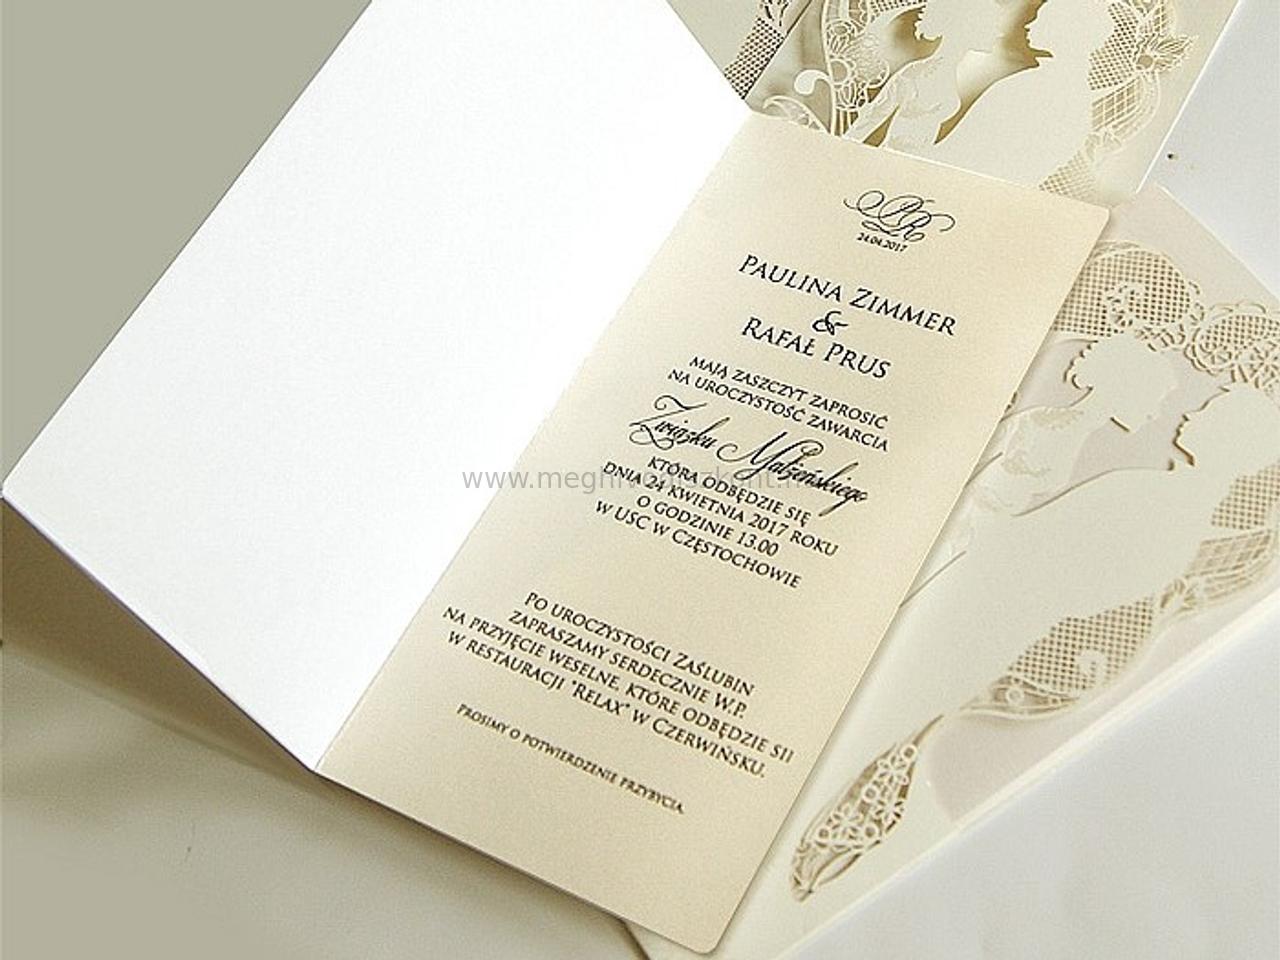 PR
24.04.2017
PAULINA ZIMMER
&
RAFAŁ PRUS
MAJĄ ZASZCZYT ZAPROSIĆ
NA UROCZYSTOŚĆ ZAWARCIA
Związku Małżeńskiego
KTÓRA ODBĘDZIE SIĘ
DNIA 24 KWIETNIA 2017 ROKU
O GODZINIE 13.00
W USC W CZĘSTOCHOWIE
PO UROCZYSTOŚCI ZAŚLUBIN
ZAPRASZAMY SERDECZNIE W.P.
NA PRZYJĘCIE WESELNE, KTÓRE ODBĘDZIE SII
W RESTAURACJI "RELAX" W CZERWIŃSKU.
PROSIMY O POTWIERDZENIE PRZYBYCIA.